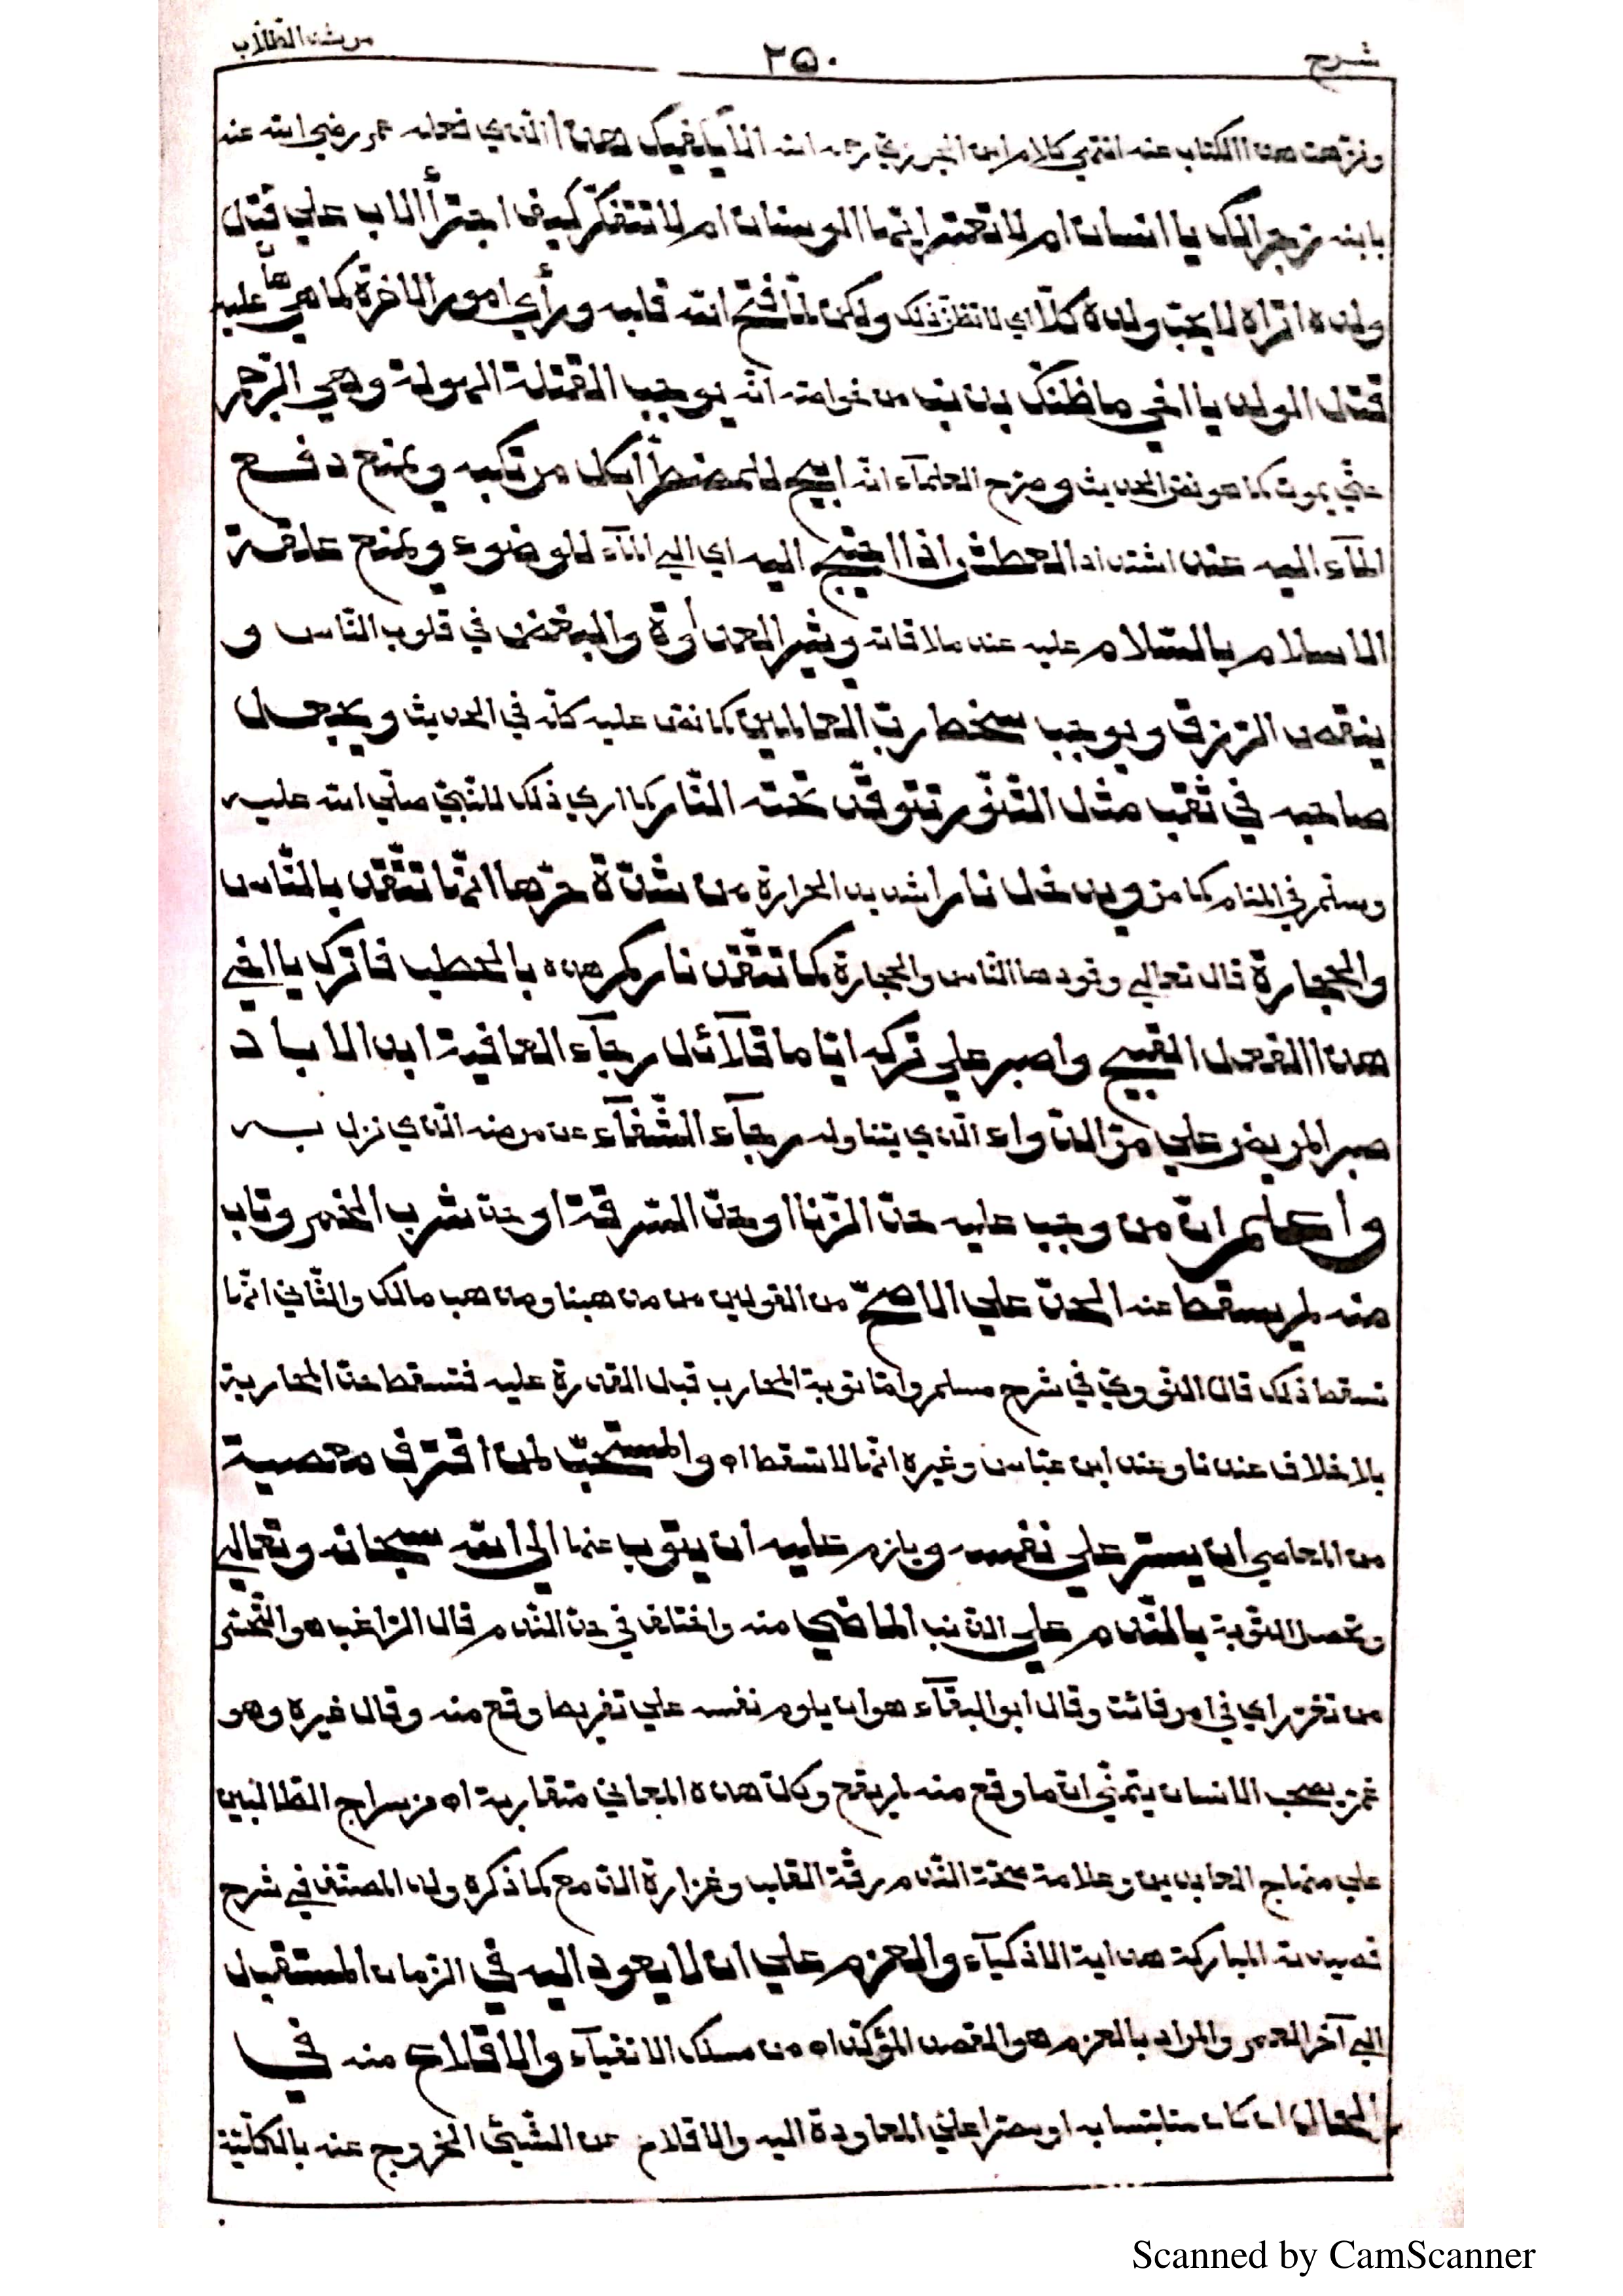 شرح ٢٥٠ مرشد الطلاب
ونزهت هذا الكتاب عنه انتهى كلام ابن الجزري رحمه الله الا يكفيك هذا الذي فعله عمر رضي الله عنه
بابنه زجرا لك يا انسان ام لا تعتبر ايها الوسنان ام لا تتفكر كيف اجترأ الاب علي قتل
ولده اتراه لا يحب ولده كلا اي لا تظن ذلك ولكن لما فتح الله قلبه ورأي امور الاخرة كما هي عليه
قتل الولد يا اخي ما ظنك بذنب من خواصه انه يوجب القتلة المهولة وهي الرجم
حتي يموت كما هو نص الحديث وصرح العلماء انه ابيح للمضطر أكل مرتكبه ويمنع دفع
الماء اليه عند اشتداد العطش اذا احتيج اليه اي الي الماء للوضوء ويمنع علاقة
الاسلام بالسلام عليه عند ملاقاته ويثير العداوة والبغض في قلوب الناس و
ينقص الرزق ويوجب سخط رب العالمين كما نص عليه كله في الحديث ويجعل
صاحبه في ثقب مثل التنور تتوقد تحته النار كما اري ذلك للنبي صلي الله عليه
وسلم في المنام كما مر ويدخل نارا شديد الحرارة من شدة حرها انها تتقد بالناس
والحجارة قال تعالي وقودها الناس والحجارة كما تتقد ناركم هذه بالحطب فاترك يا اخي
هذا الفعل القبيح واصبر علي تركه اياما قلائل رجاء العافية ابد الاباد
صبر المريض علي مر الدواء الذي يتناوله رجاء الشفاء عن مرضه الذي نزل به
وأعلم ان من وجب عليه حد الزنا او حد السرقة او حد شرب الخمر وتاب
منه لم يسقط عنه الحد علي الاصح من القولين من مذهبنا ومذهب مالك والثاني انها
تسقط ذلك قال النووي في شرح مسلم واما توبة المحارب قبل القدرة عليه فتسقط حد المحاربة
بلا خلاف عندنا وعند ابن عباس وغيره انها لا تسقط اه والمستحب لمن اقترف معصية
من المعاصي ان يستر علي نفسه ويلزم عليه أن يتوب عنها الى الله سبحانه وتعالي
وتحصل التوبة بالندم علي الذنب الماضي منه واختلف في حد الندم قال الراغب هو التحسر
من تغير راي في امر فائت وقال ابو البقاء هو ان يلوم نفسه علي تفريط وقع منه وقال غيره وهو
غم يصحب الانسان يتمني ان ما وقع منه لم يقع وكل هذه المعاني متقاربة اه من سراج الطالبين
علي منهاج العابدين وعلامة صحة الندم رقة القلب وغزارة الدمع كما ذكره ولد المصنف في شرح
قصيدته المباركة هداية الاذكياء والعزم علي ان لا يعود اليه في الزمان المستقبل
الي آخر العمر والمراد بالعزم هو القصد المؤكد اه من مسلك الاتقياء والاقلاع منه في
الحال ان كان متلبسا به او مصرا علي المعاودة اليه والاقلاع عن الشيئ الخروج عنه بالكلية
Scanned by CamScanner